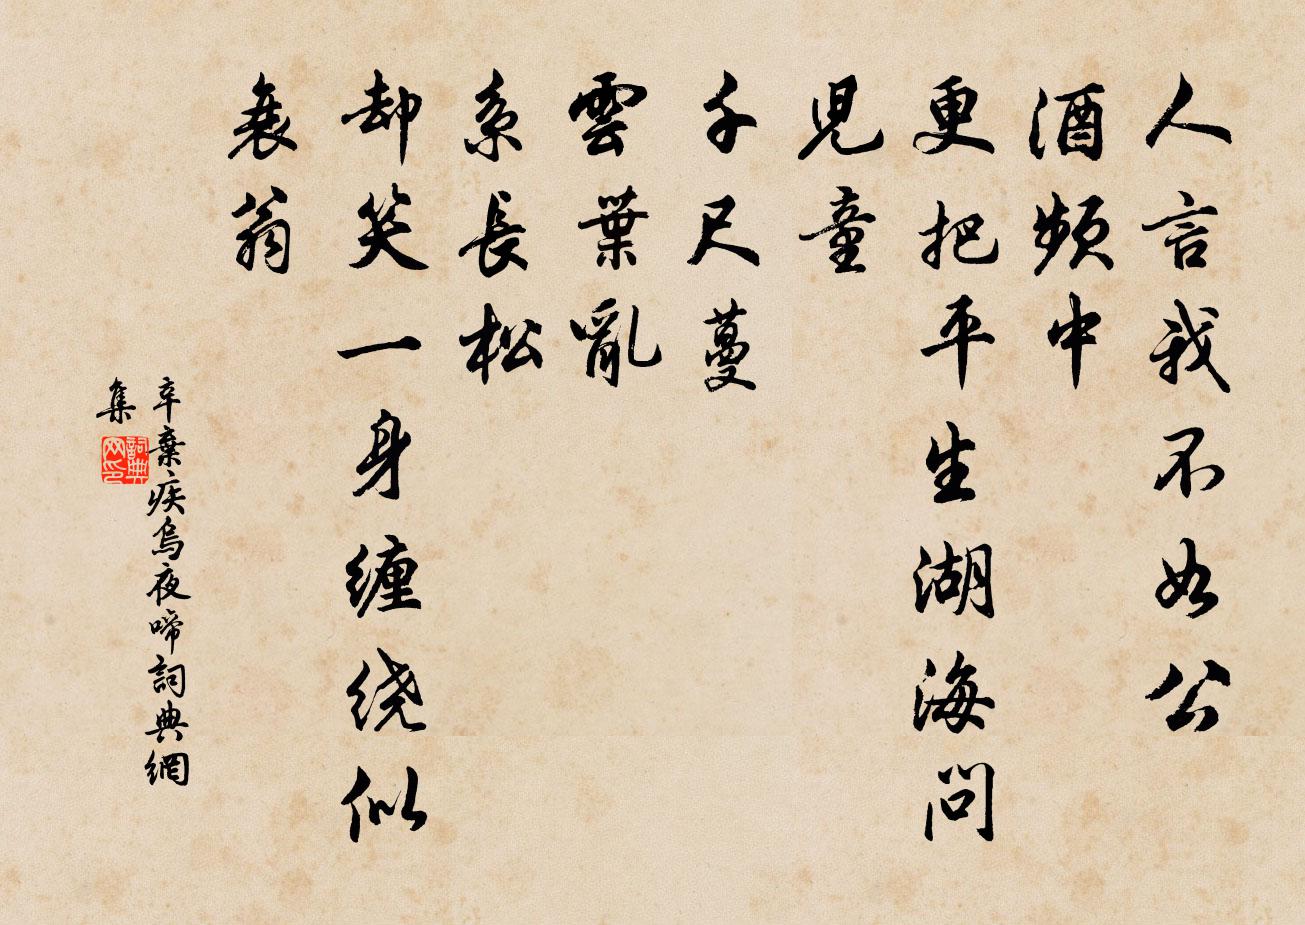 人言我不如公
酒频中
更把平生湖海问
児童
千尺蔓
雲葉亂
系長松
却笑一身缠绕似
衰翁
辛棄疾烏夜啼詞典網
集
詞典
网印